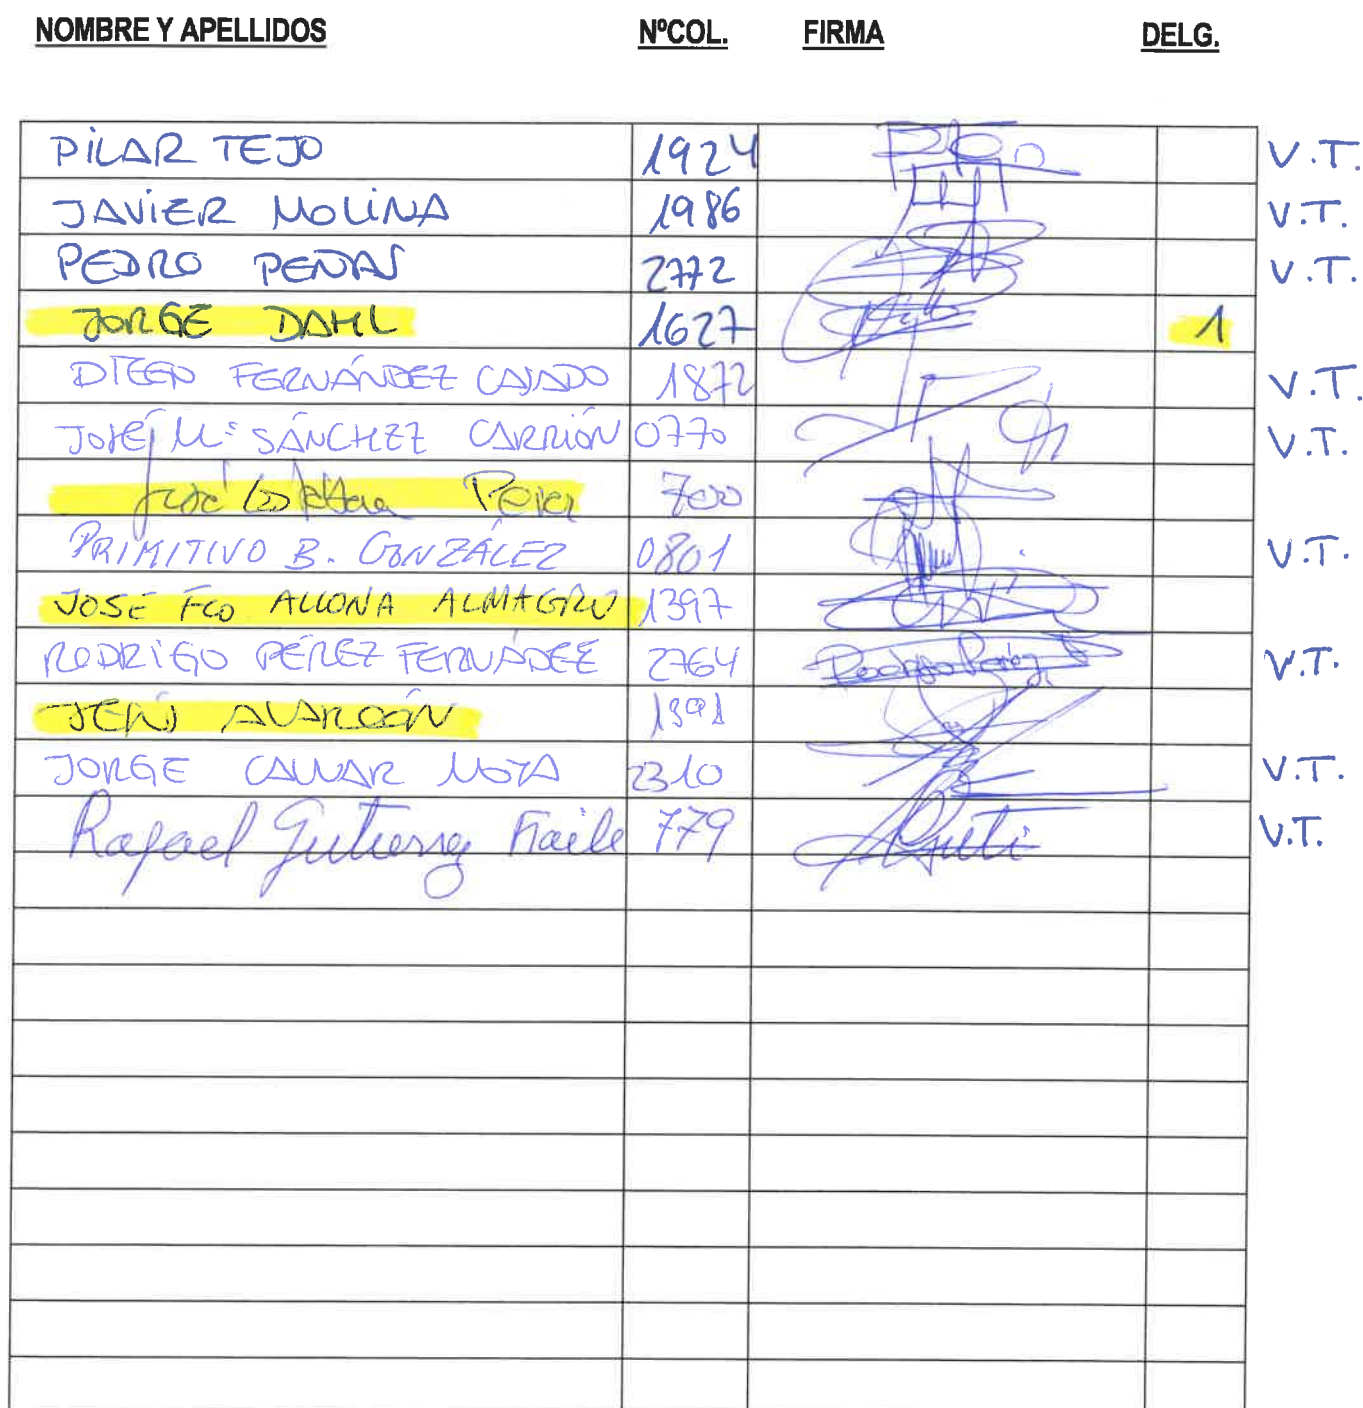 NOMBRE Y APELLIDOS NºCOL. FIRMA DELG.
PILAR TEJO 1924 V.T.
JAVIER MOLINA 1986 V.T.
PEDRO PEÑAS 2772 V.T.
JORGE DAHL 1627 1
DIEGO FERNÁNDEZ CASADO 1872 V.T.
JOSÉ Mª SÁNCHEZ CARRIÓN 0770 V.T.
José 700
PRIMITIVO B. GONZÁLEZ 0801 V.T.
JOSE FCO ALLONA ALMAGRO 1397
RODRIGO PÉREZ FERNÁNDEZ 2764 Rodrigo Pérez V.T.
1391
JORGE 2310 V.T.
Rafael Gutierrez Fraile 779 Guti V.T.